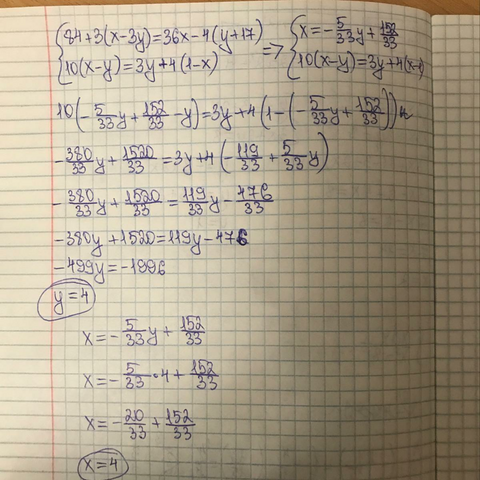 { 84+3(x-3y)=36x-4(y+17) => { x=-5/33y+152/33
{ 10(x-y)=3y+4(1-x) { 10(x-y)=3y+4(x-
10(-5/33y+152/33-y)=3y+4(1-(-5/33y+152/33))
-380/33y+1520/33=3y+4(-119/33+5/33y)
-380/33y+1520/33=119/33y-476/33
-380y+1520=119y-476
-499y=-1996
y=4
x=-5/33y+152/33
x=-5/33·4+152/33
x=-20/33+152/33
x=4